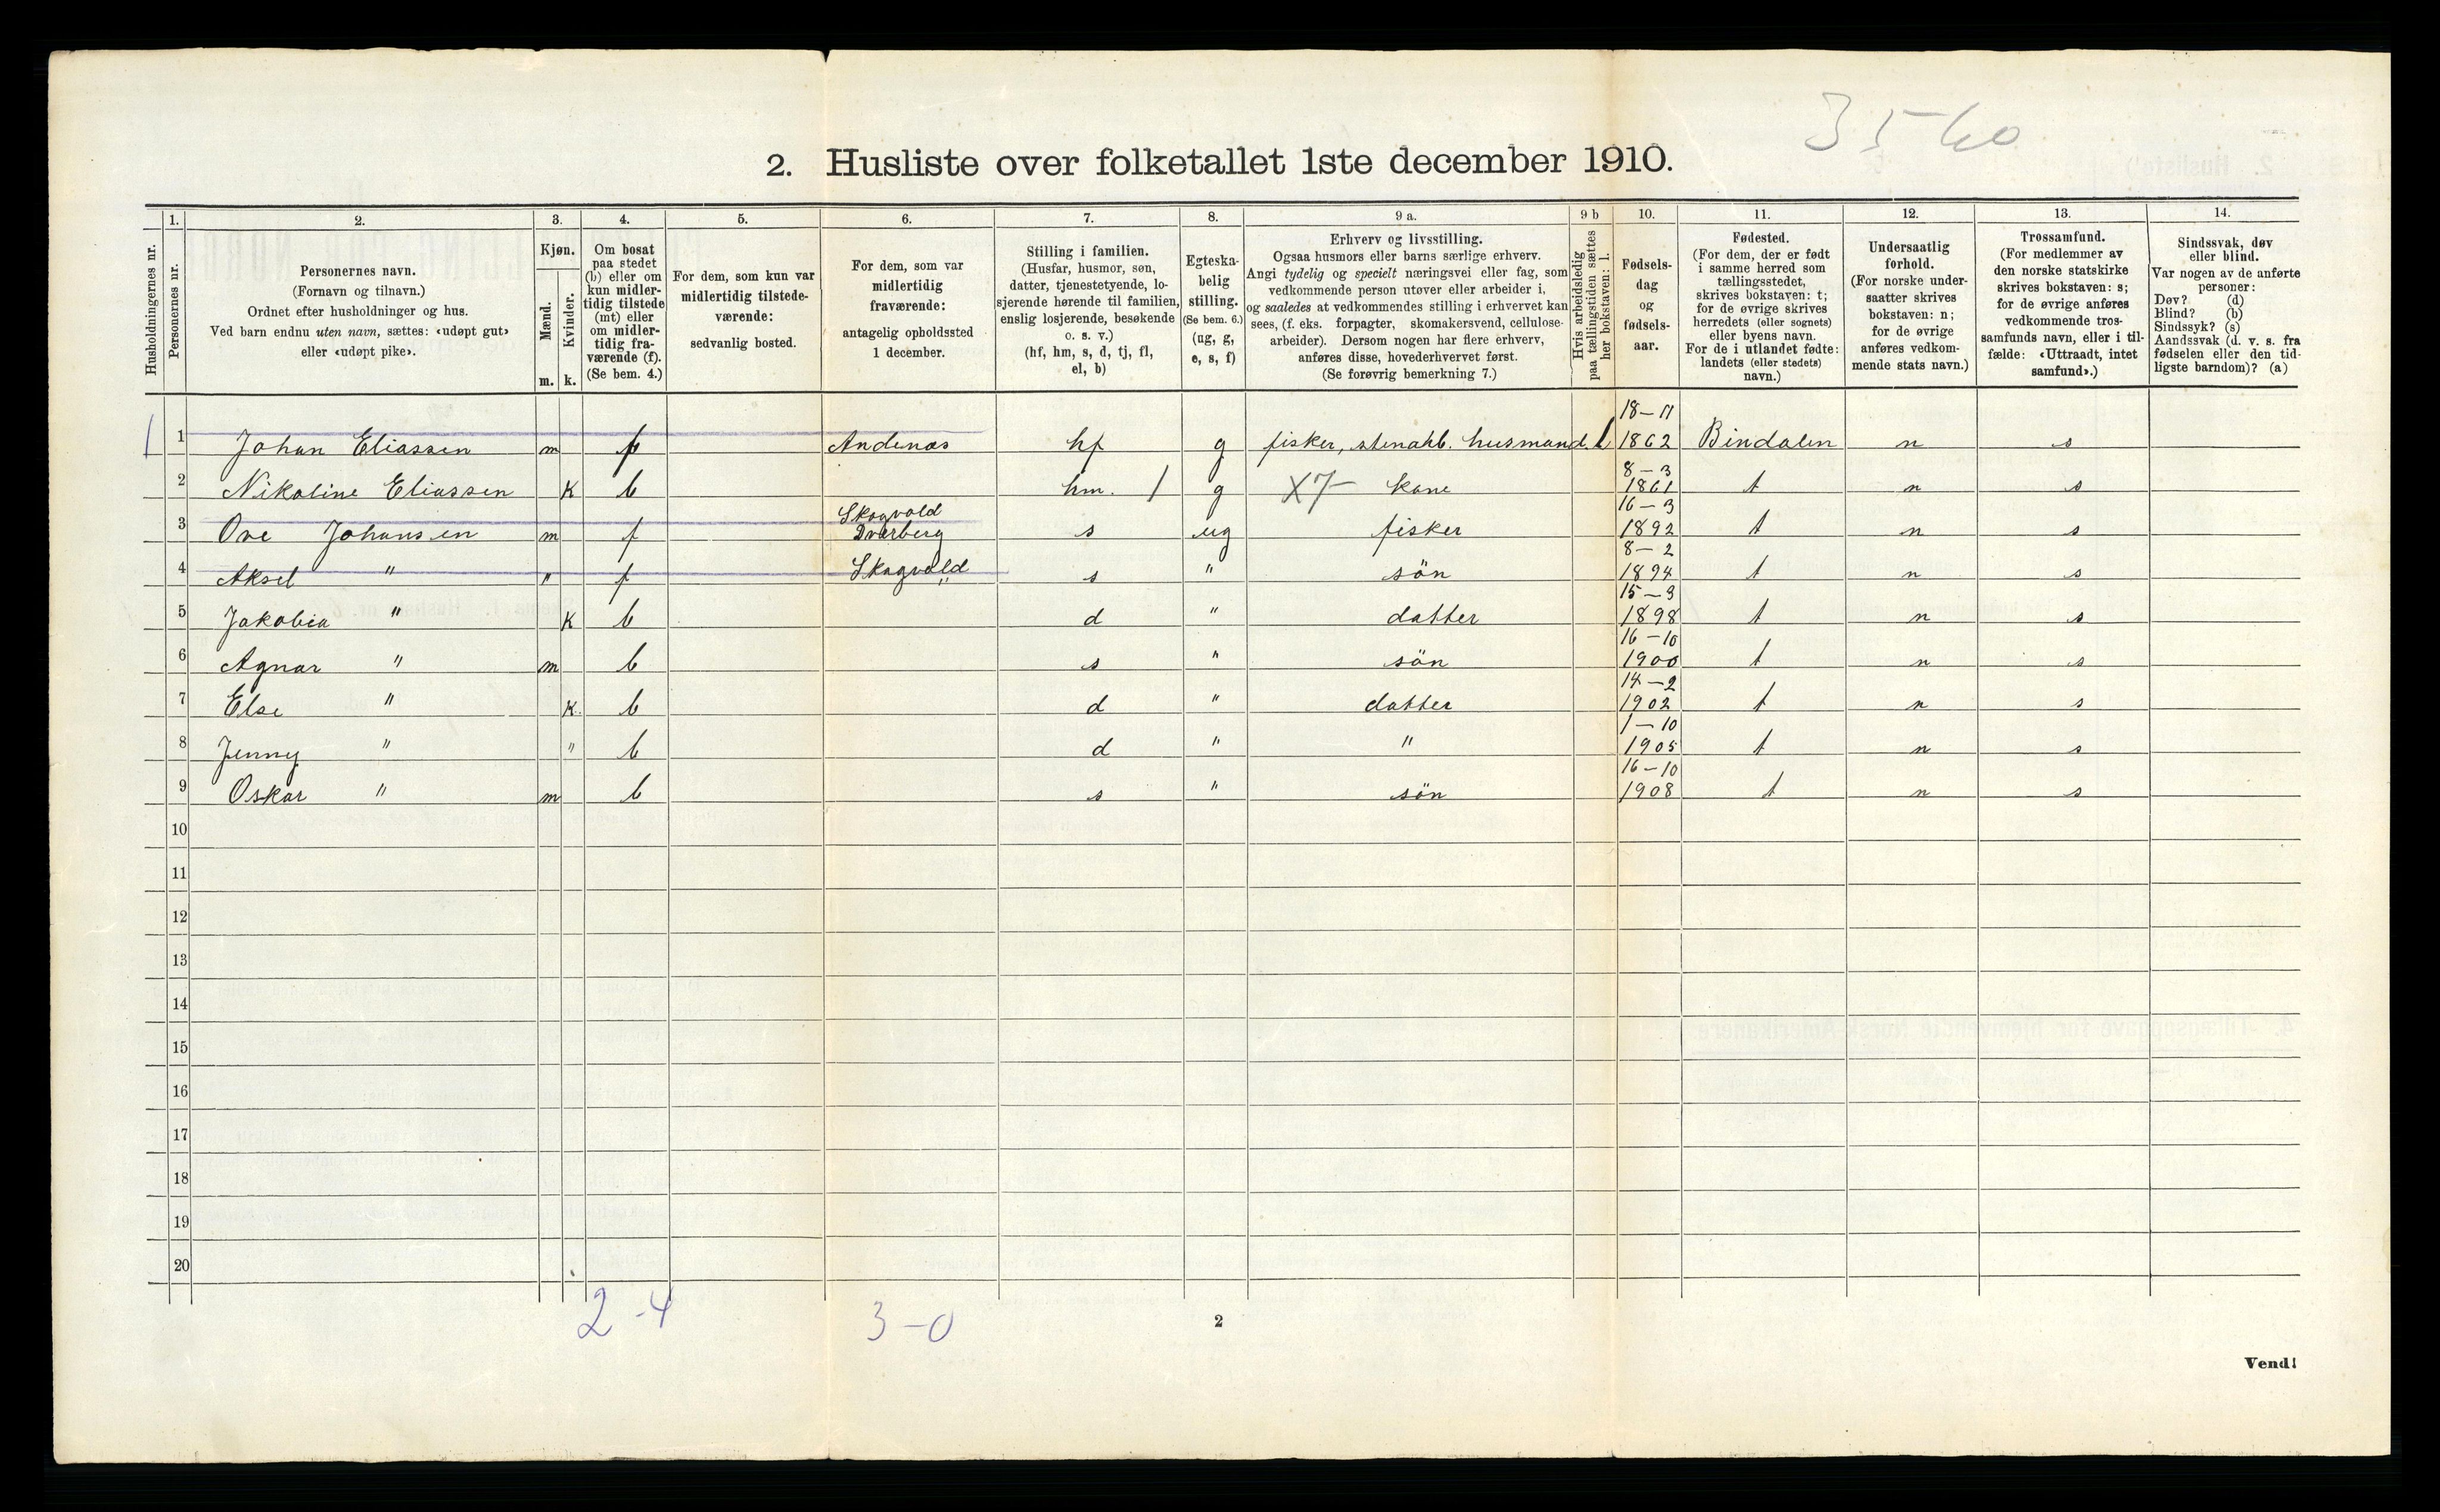 35-60
2. Husliste over folketallet 1ste december 1910.
1. 2. 3. 4. 5. 6. 7. 8. 9 a. 9 b 10. 11. 12. 13. 14.
Husholdningernes nr.
Personernes nr.
Personernes navn.
(Fornavn og tilnavn.)
Ordnet efter husholdninger og hus.
Ved barn endnu uten navn, sættes: «udøpt gut»
eller «udøpt pike».
Kjøn.
Mænd.
Kvinder.
m. k.
Om bosat
paa stedet
(b) eller om
kun midler-
tidig tilstede
(mt) eller
om midler-
tidig fra-
værende (f).
(Se bem. 4.)
For dem, som kun var
midlertidig tilstede-
værende:
sedvanlig bosted.
For dem, som var
midlertidig
fraværende:
antagelig opholdssted
1 december.
Stilling i familien.
(Husfar, husmor, søn,
datter, tjenestetyende, lo-
sjerende hørende til familien,
enslig losjerende, besøkende
o. s. v.)
(hf, hm, s, d, tj, fl,
el, b)
Egteska-
belig
stilling.
(Se bem. 6.)
(ug, g,
e, s, f)
Erhverv og livsstilling.
Ogsaa husmors eller barns særlige erhverv.
Angi tydelig og specielt næringsvei eller fag, som
vedkommende person utøver eller arbeider i,
og saaledes at vedkommendes stilling i erhvervet kan
sees, (f. eks. forpagter, skomakersvend, cellulose-
arbeider). Dersom nogen har flere erhverv,
anføres disse, hovederhvervet først.
(Se forøvrig bemerkning 7.)
Hvis arbeidsledig
paa tællingstiden sættes
her bokstaven: l.
Fødsels-
dag
og
fødsels-
aar.
Fødested.
(For dem, der er født
i samme herred som
tællingsstedet,
skrives bokstaven: t;
for de øvrige skrives
herredets (eller sognets)
eller byens navn.
For de i utlandet fødte:
landets (eller stedets)
navn.)
Undersaatlig
forhold.
(For norske under-
saatter skrives
bokstaven: n;
for de øvrige
anføres vedkom-
mende stats navn.)
Trossamfund.
(For medlemmer av
den norske statskirke
skrives bokstaven: s;
for de øvrige anføres
vedkommende tros-
samfunds navn, eller i til-
fælde: «Uttraadt, intet
samfund».)
Sindssvak, døv
eller blind.
Var nogen av de anførte
personer:
Døv? (d)
Blind? (b)
Sindssyk? (s)
Aandssvak (d. v. s. fra
fødselen eller den tid-
ligste barndom)? (a)
18-11
1 1 Johan Eliassen m f Andenæs hf g fisker, stenarb. husmand. l 1862 Bindalen n s
8-3
2 Nikoline Eliassen K b hm. 1 g X7- kone 1861 t n s
Skogvold 16-3
3 Ove Johansen m f Dverberg s ug fisker 1892 t n s
8-2
4 Aksel " " f Skogvold " s " søn 1894 t n s
15-3
5 Jakobia " K b d " datter 1898 t n s
16-10
6 Agnar " m b s " søn 1900 t n s
14-2
7 Else " K. b d " datter 1902 t n s
1-10
8 Jenny " " b d " " 1905 t n s
16-10
9 Oskar " m b s " søn 1908 t n s
10
11
12
13
14
15
16
17
18
19
20
2-4 3-0
2
Vend!